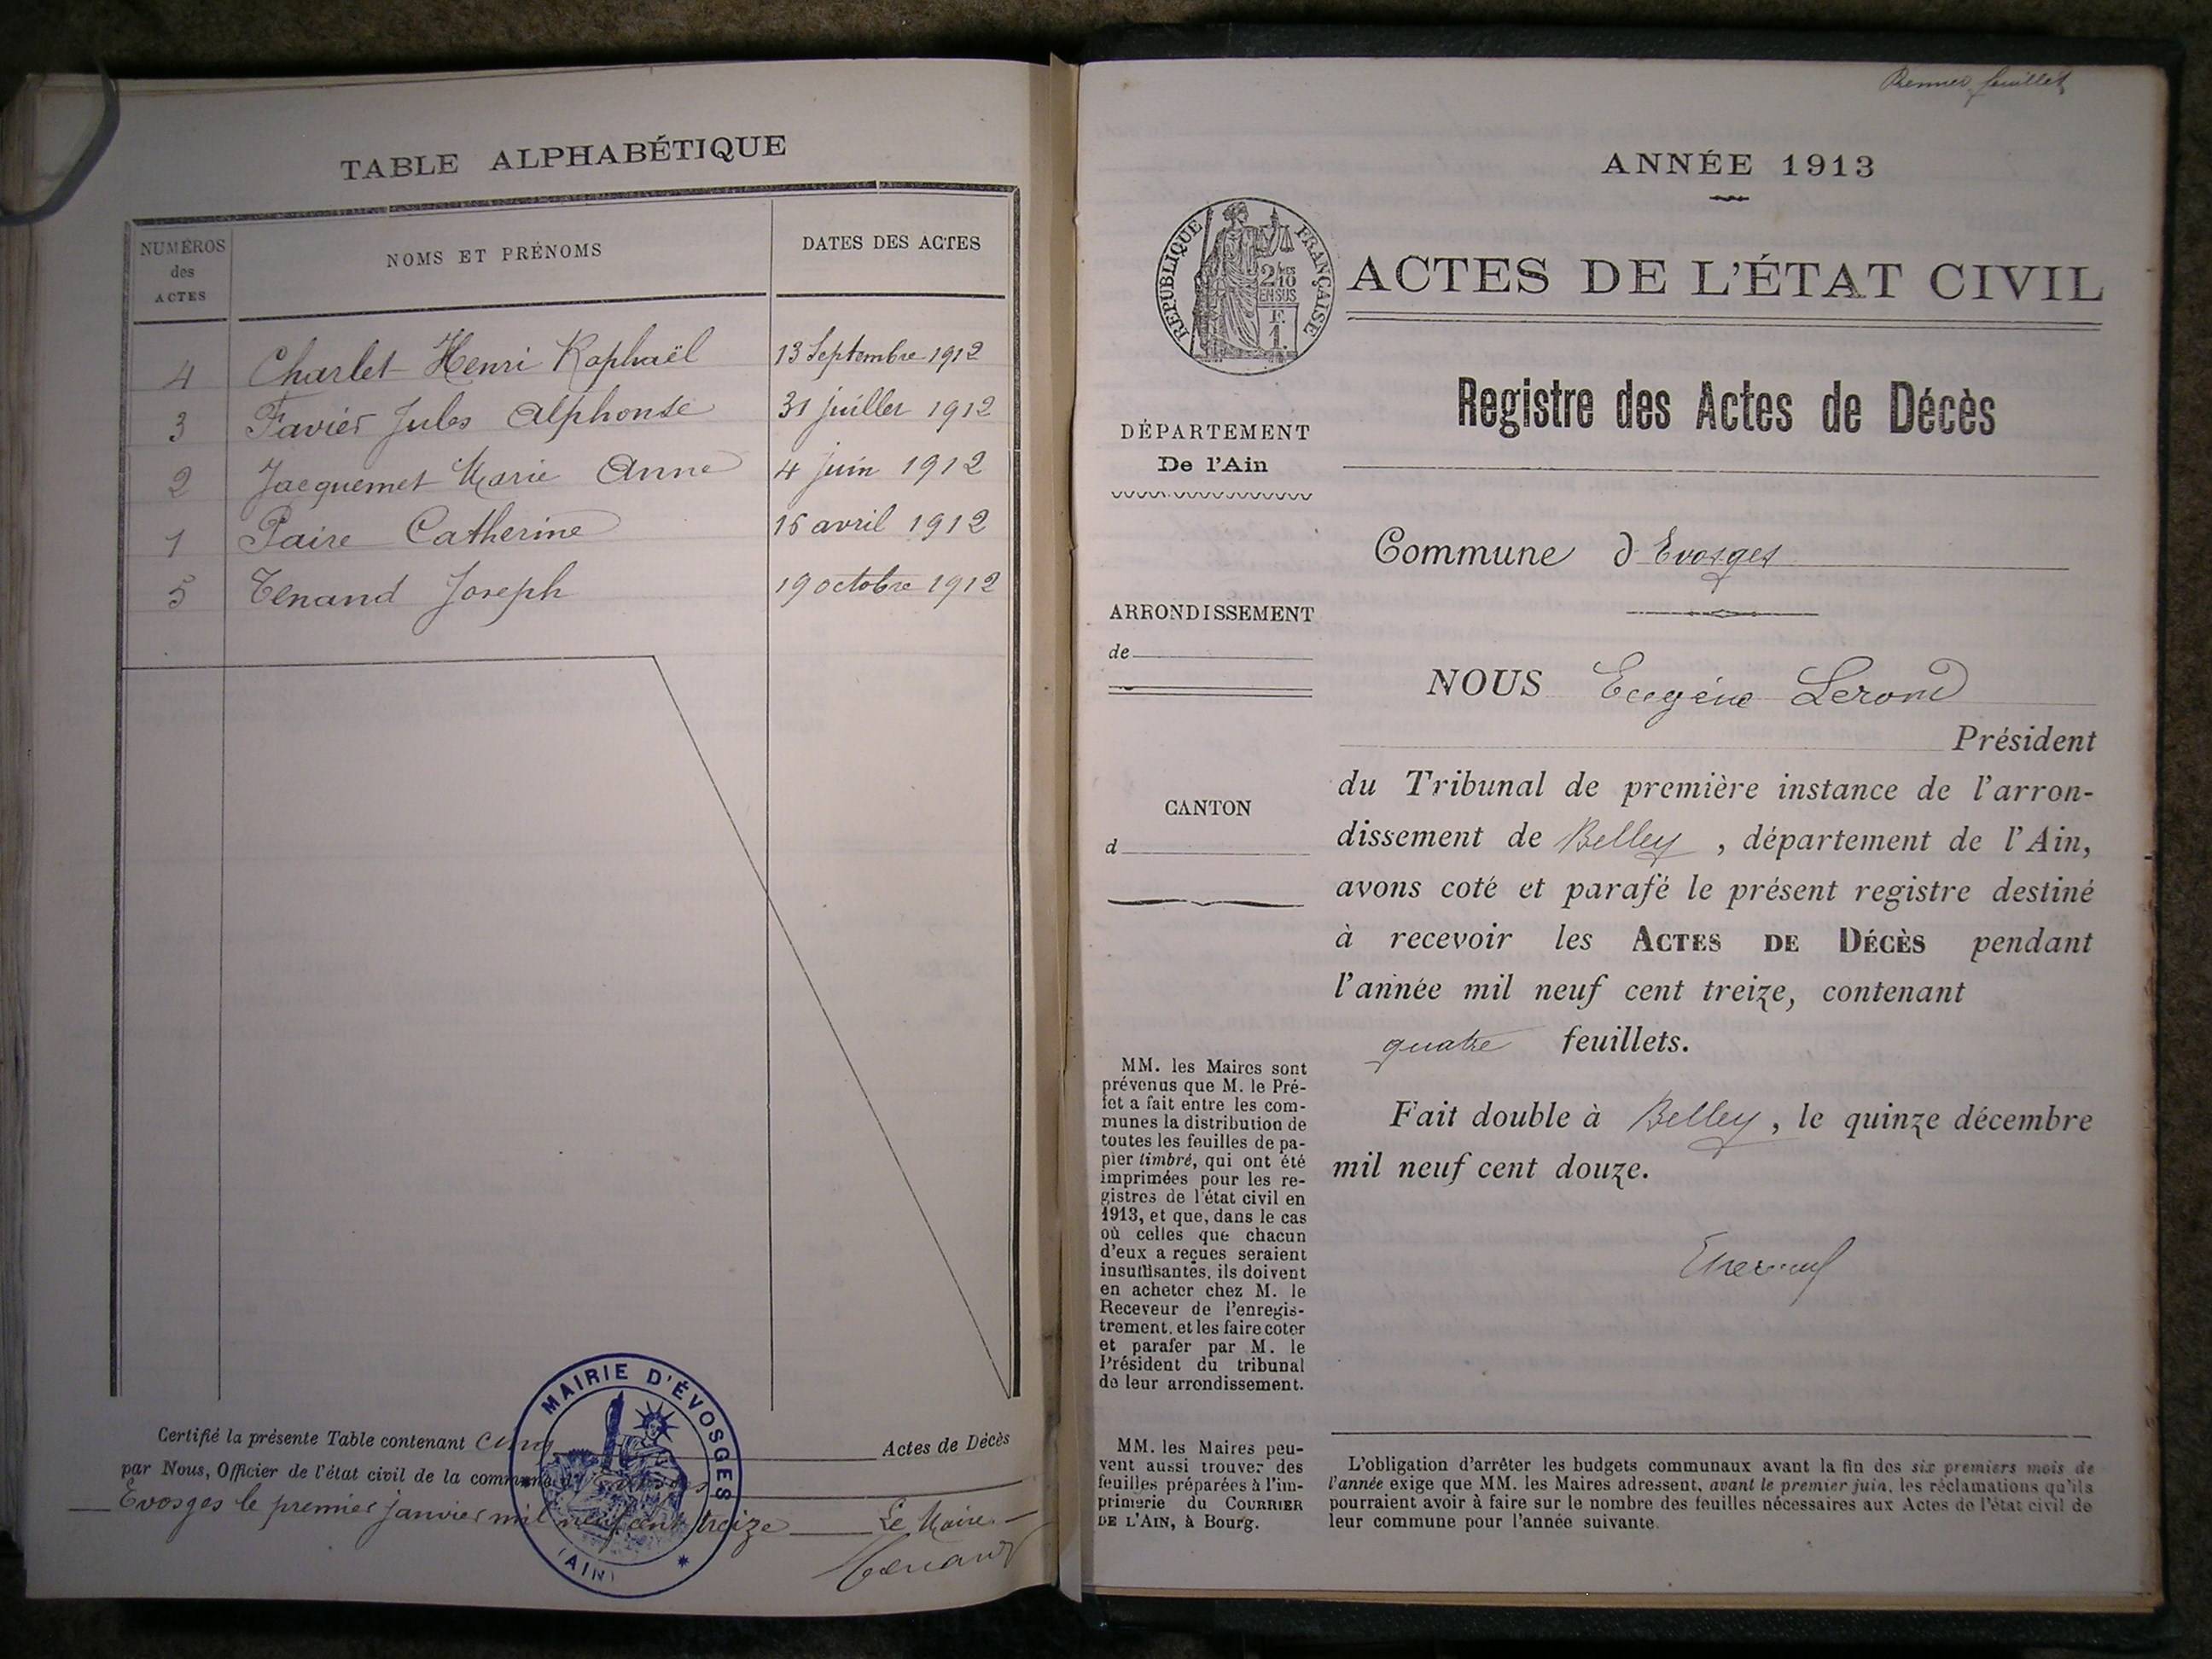 TABLE ALPHABÉTIQUE
NUMÉROS
des
ACTES
NOMS ET PRÉNOMS
DATES DES ACTES
4 Charlet Henri Raphaël 13 Septembre 1912
3 Favier Jules Alphonse 31 juillet 1912
2 Jacquemet Marie Anne 4 juin 1912
1 Paire Catherine 16 avril 1912
5 Tenand Joseph 19 octobre 1912
Certifié la présente Table contenant cinq Actes de Décès
par Nous, Officier de l'état civil de la commune
Evosges le premier janvier mil neuf cent treize Le Maire
Tenand
MAIRIE D'ÉVOSGES
(AIN)
Premier feuillet
ANNÉE 1913
RÉPUBLIQUE FRANÇAISE
2/10
EN SUS
F.
1.
ACTES DE L'ÉTAT CIVIL
Registre des Actes de Décès
DÉPARTEMENT
De l'Ain
Commune d'Evosges
ARRONDISSEMENT
de
CANTON
d
NOUS Eugène Lerond
Président
du Tribunal de première instance de l'arron-
dissement de Belley, département de l'Ain,
avons coté et parafé le présent registre destiné
à recevoir les ACTES DE DÉCÈS pendant
l'année mil neuf cent treize, contenant
quatre feuillets.
Fait double à Belley, le quinze décembre
mil neuf cent douze.
MM. les Maires sont
prévenus que M. le Pré-
fet a fait entre les com-
munes la distribution de
toutes les feuilles de pa-
pier timbré, qui ont été
imprimées pour les re-
gistres de l'état civil en
1913, et que, dans le cas
où celles que chacun
d'eux a reçues seraient
insuffisantes, ils doivent
en acheter chez M. le
Receveur de l'enregis-
trement, et les faire coter
et parafer par M. le
Président du tribunal
de leur arrondissement.
MM. les Maires peu-
vent aussi trouver des
feuilles préparées à l'im-
primerie du COURRIER
DE L'AIN, à Bourg.
L'obligation d'arrêter les budgets communaux avant la fin des six premiers mois de
l'année exige que MM. les Maires adressent, avant le premier juin, les réclamations qu'ils
pourraient avoir à faire sur le nombre des feuilles nécessaires aux Actes de l'état civil de
leur commune pour l'année suivante.